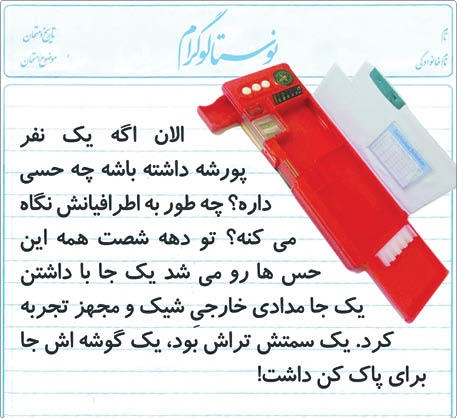 نام
نام خانوادگی
نوستالوگرام
تاریخ امتحان
موضوع امتحان
الان اگه یک نفر
پورشه داشته باشه چه حسی
داره؟ چه طور به اطرافیانش نگاه
می کنه؟ تو دهه شصت همه این
حس ها رو می شد یک جا با داشتن
یک جا مدادی خارجیِ شیک و مجهز تجربه
کرد. یک سمتش تراش بود، یک گوشه اش جا
برای پاک کن داشت!